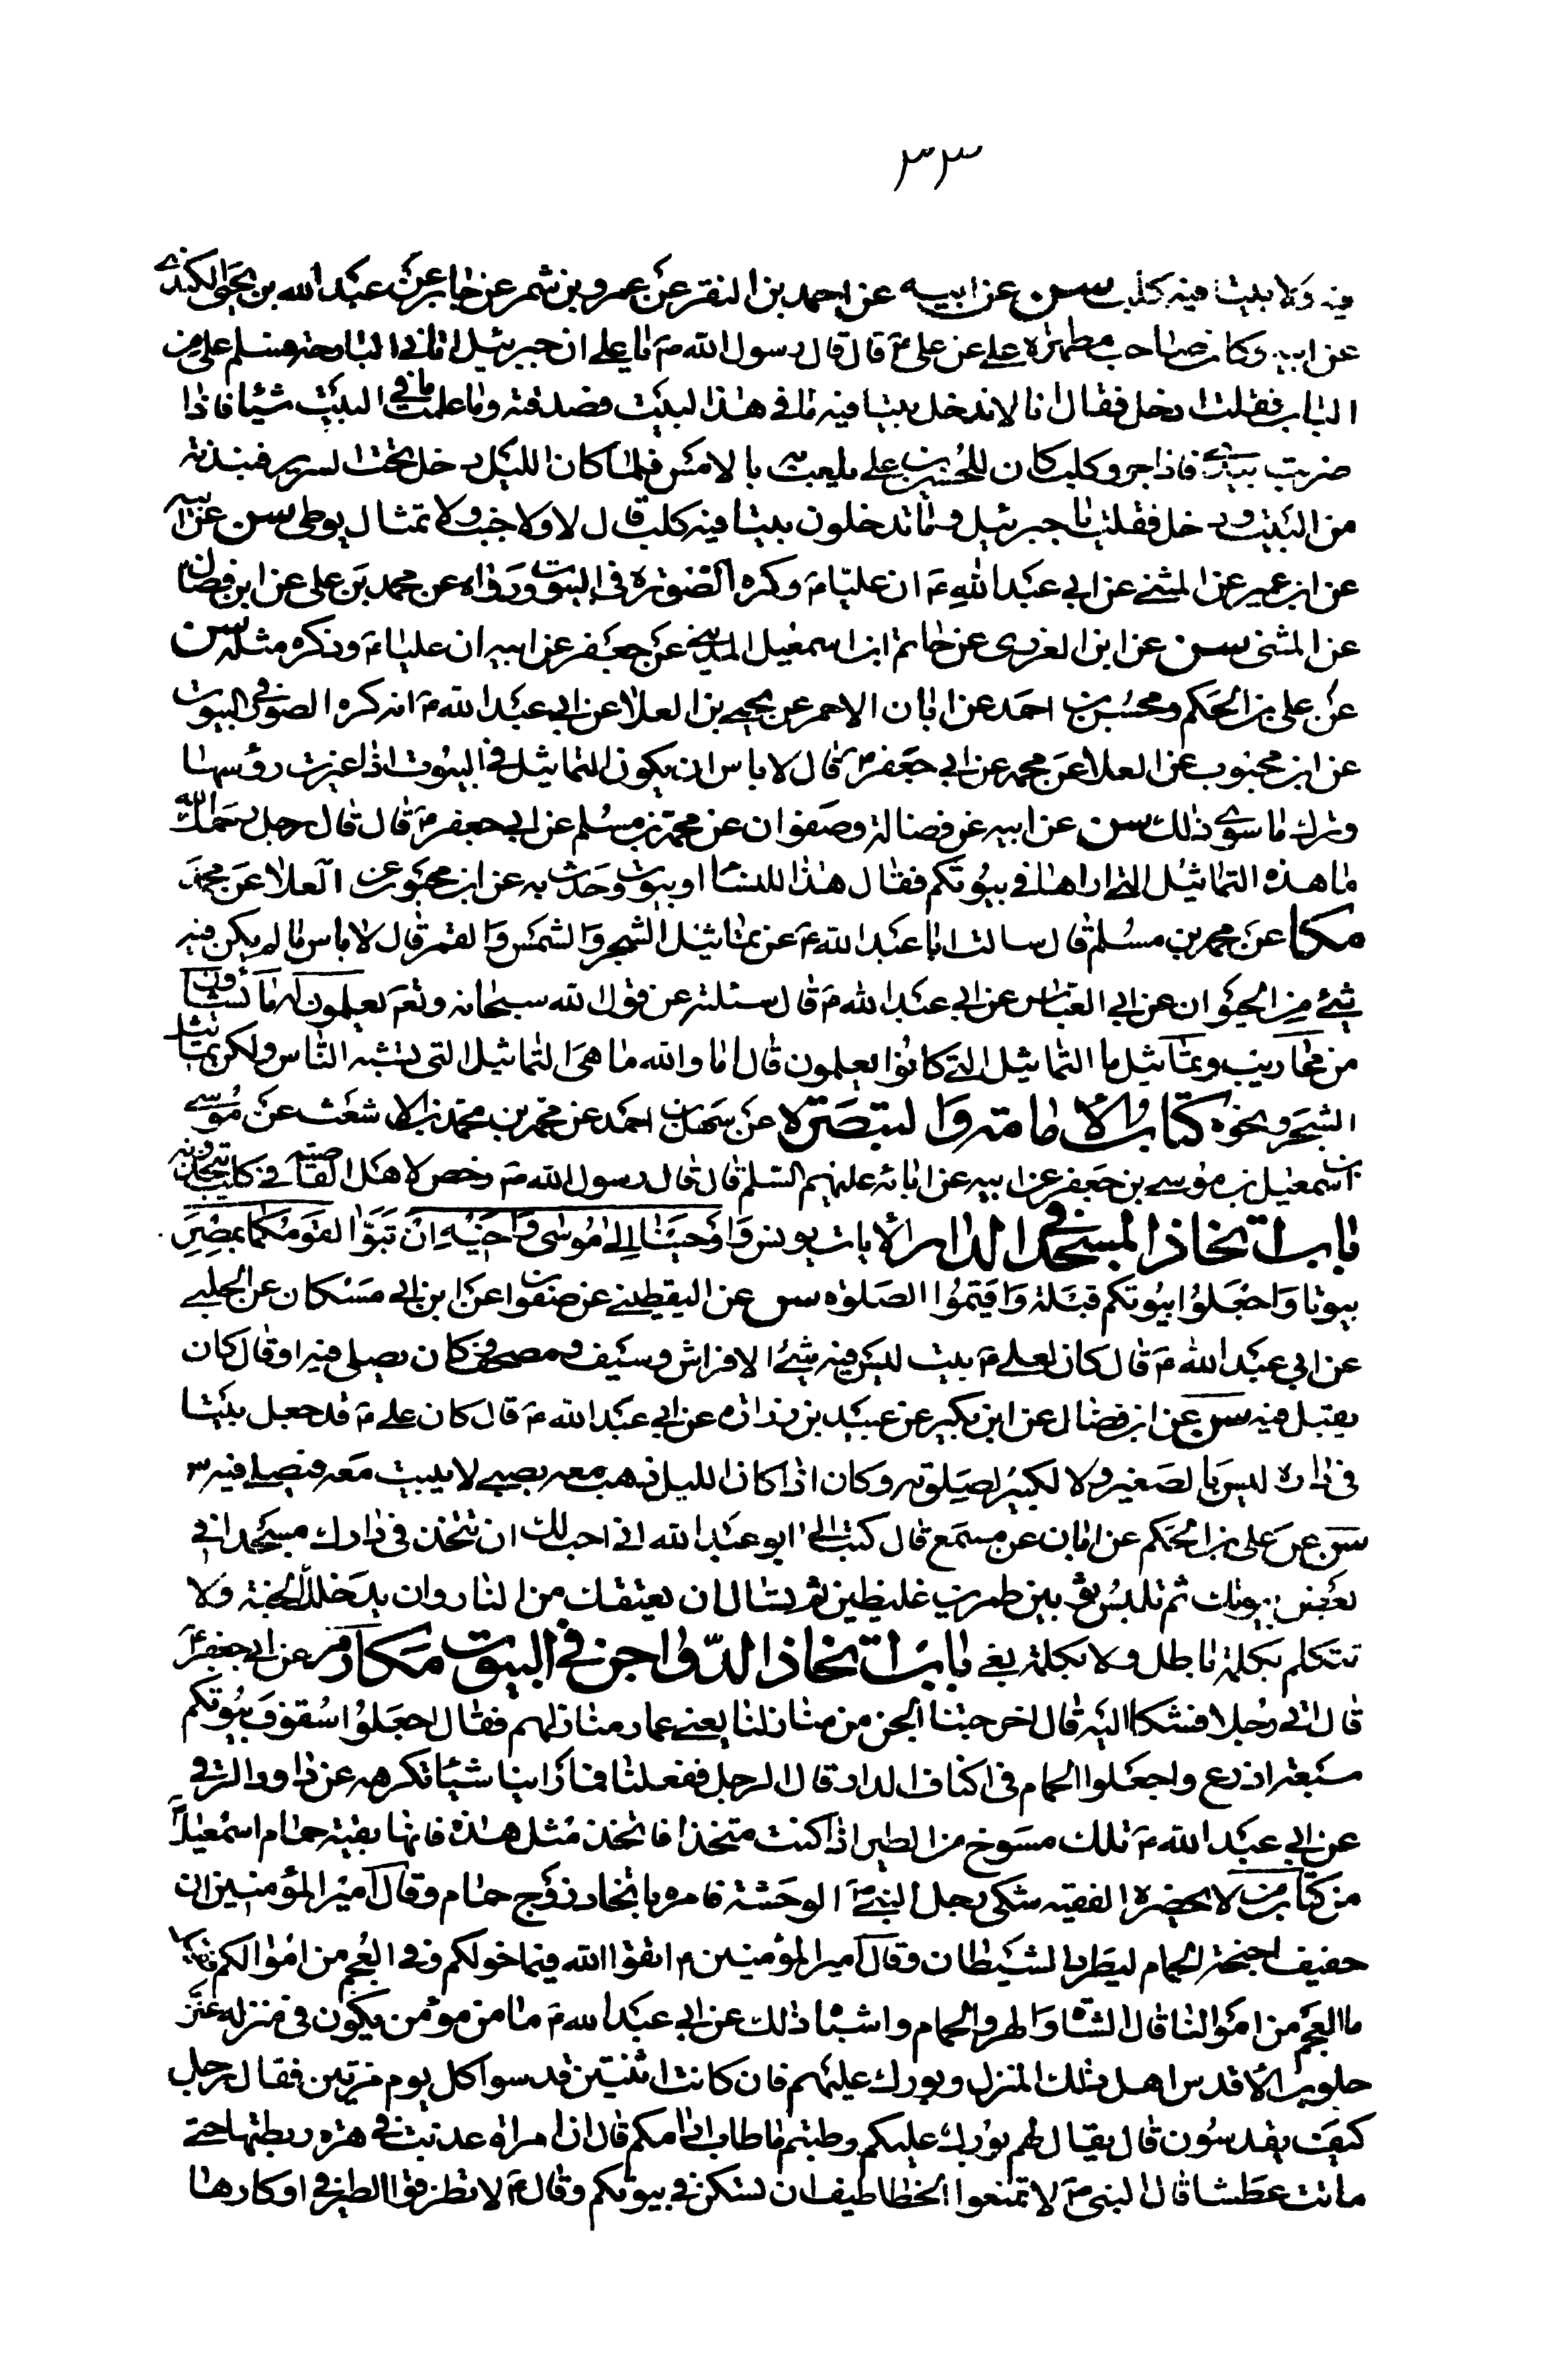 ٣٣
فيه ولا بيتا فيه كلب سن عن ابيه عن احمد بن النضر عن عمرو بن شمر عن جابر عن عبد الله بن يحيى الكندى
عن ابيه وكان صاحب مطهرة على عن على ع قال قال رسول الله ص يا على ان جبرئيل اتانى البارحة فسلم على من
الباب فقلت ادخل فقال انا لا ندخل بيتا فيه ما فى هذا البيت فصدقته وما علمت ما فى البيت شيئا فاذا
ضربت بيدى فاذا جرو كلب كان للحسين بن على يلعب به بالامس فلما كان الليل دخل تحت السرير فنبذته
من البيت ودخل فقلت يا جبرئيل وما تدخلون بيتا فيه كلب قال لا ولا جنب ولا تمثال يوطى سن عن ابيه
عن ابن عمير عن المثنى عن ابى عبد الله ع ان عليا ع وكره الصورة فى البيوت ورواه عن محمد بن على عن ابن فضال
عن المثنى سن عن ابن العزرمى عن حاتم ابن اسمعيل المدينى عن جعفر عن ابيه ان عليا ع وذكره مثله سن
عن على بن الحكم ومحسن بن احمد عن ابان الاحمر عن يحيى بن العلا عن ابى عبد الله ع انه كره الصور فى البيوت
عن ابن محبوب عن العلا عن محمد عن ابى جعفر ع قال لا باس ان يكون التماثيل فى البيوت اذا غيرت رؤسها
وترك ما سوى ذلك سن عن ابيه عن فضالة وصفوان عن محمد بن مسلم عن ابى جعفر ع قال قال رجل رحمك الله
ما هذه التماثيل التى اراها فى بيوتكم فقال هذا للنسا او بيوت وحدث به عن ابن محبوب عن العلا عن محمد
مكا عن محمد بن مسلم قال سالت ابا عبد الله ع عن تماثيل الشجر والشمس والقمر قال لا باس ما لم يكن فيه
شئ من الحيوان عن ابى العباس عن ابى عبد الله ع قال سئلته عن قول الله سبحانه وتع يعملون له ما يشاؤن
من محاريب وتماثيل ما التماثيل التى كانوا يعملون قال اما والله ما هى التماثيل التى تشبه الناس ولكن تماثيل
الشجر ونحوه كتاب الامامة والتبصرة عن سهل بن احمد عن محمد بن محمد بن الاشعث عن موسى
بن اسمعيل بن موسى بن جعفر عن ابيه عن ابائه عليهم السلم قال قال رسول الله ص رخص لاهل القاصية فى كلب يتخذونه
باب اتخاذ المسجد فى الدار الايات يونس واوحينا الى موسى واخيه ان تبوا لقومكما بمصر
بيوتا واجعلوا بيوتكم قبلة واقيموا الصلوة سن عن اليقطينى عن صفوان عن ابن مسكان عن الحلبى
عن ابى عبد الله ع قال كان لعلى ع بيت ليس فيه شئ الا فراش وسيف ومصحف وكان يصلى فيه او قال كان
يقيل فيه سن عن ابن فضال عن ابن بكير عن عبيد بن زرارة عن ابى عبد الله ع قال كان على ع قد جعل بيتا
فى داره ليس بالصغير ولا الكبير لصلوته وكان اذا كان الليل ذهب معه بصبى لا يبيت معه فيصلى فيه
سن عن على بن الحكم عن ابان عن مسمع قال كتب الى ابو عبد الله انى احب لك ان تتخذ فى دارك مسجدا فى
بعض بيوتك ثم تلبس ثوبين طمرين غليظين ثم تسال الله ان يعتقك من النار وان يدخلك الجنة ولا
تتكلم بكلمة باطل ولا بكلمة بغى باب اتخاذ الدواجن فى البيوت مكارم عن ابى جعفر ع
قال اتى رجلا فشكا اليه قال اخرجتنا الجن من منازلنا يعنى عمار منازلهم فقال اجعلوا سقوف بيوتكم
سبعة اذرع واجعلوا الحمام فى اكناف الدار قال الرجل ففعلنا فما راينا شيئا نكرهه عن داود الرقى
عن ابى عبد الله ع تلك مسوخ من الطير اذا كنت متخذا فاتخذ مثل هذه فانها بقية حمام اسمعيل
من كتاب من لا يحضره الفقيه شكى رجل النبى ص الوحشة فامره باتخاذ زوج حمام وقال امير المؤمنين ان
حفيف اجنحة الحمام ليطرد الشيطان وقال امير المؤمنين ع اتقوا الله فيما خولكم وفى العجم من اموالكم فقيل
ما العجم من اموالنا قال الشاة والهر والحمام واشباه ذلك عن ابى عبد الله ع ما من مؤمن يكون فى منزله عنز
حلوب الا قدس اهل ذلك المنزل وبورك عليهم فان كانت اثنتين قدسوا كل يوم مرتين فقال رجل
كيف يقدسون قال يقال لهم بورك عليكم وطبتم ما طاب ادامكم قال ان امراة عذبت فى هرة ربطتها حتى
ماتت عطشا قال النبى ص لا تمنعوا الخطاطيف ان تسكن فى بيوتكم وقال ع لا تطرقوا الطير فى اوكارها